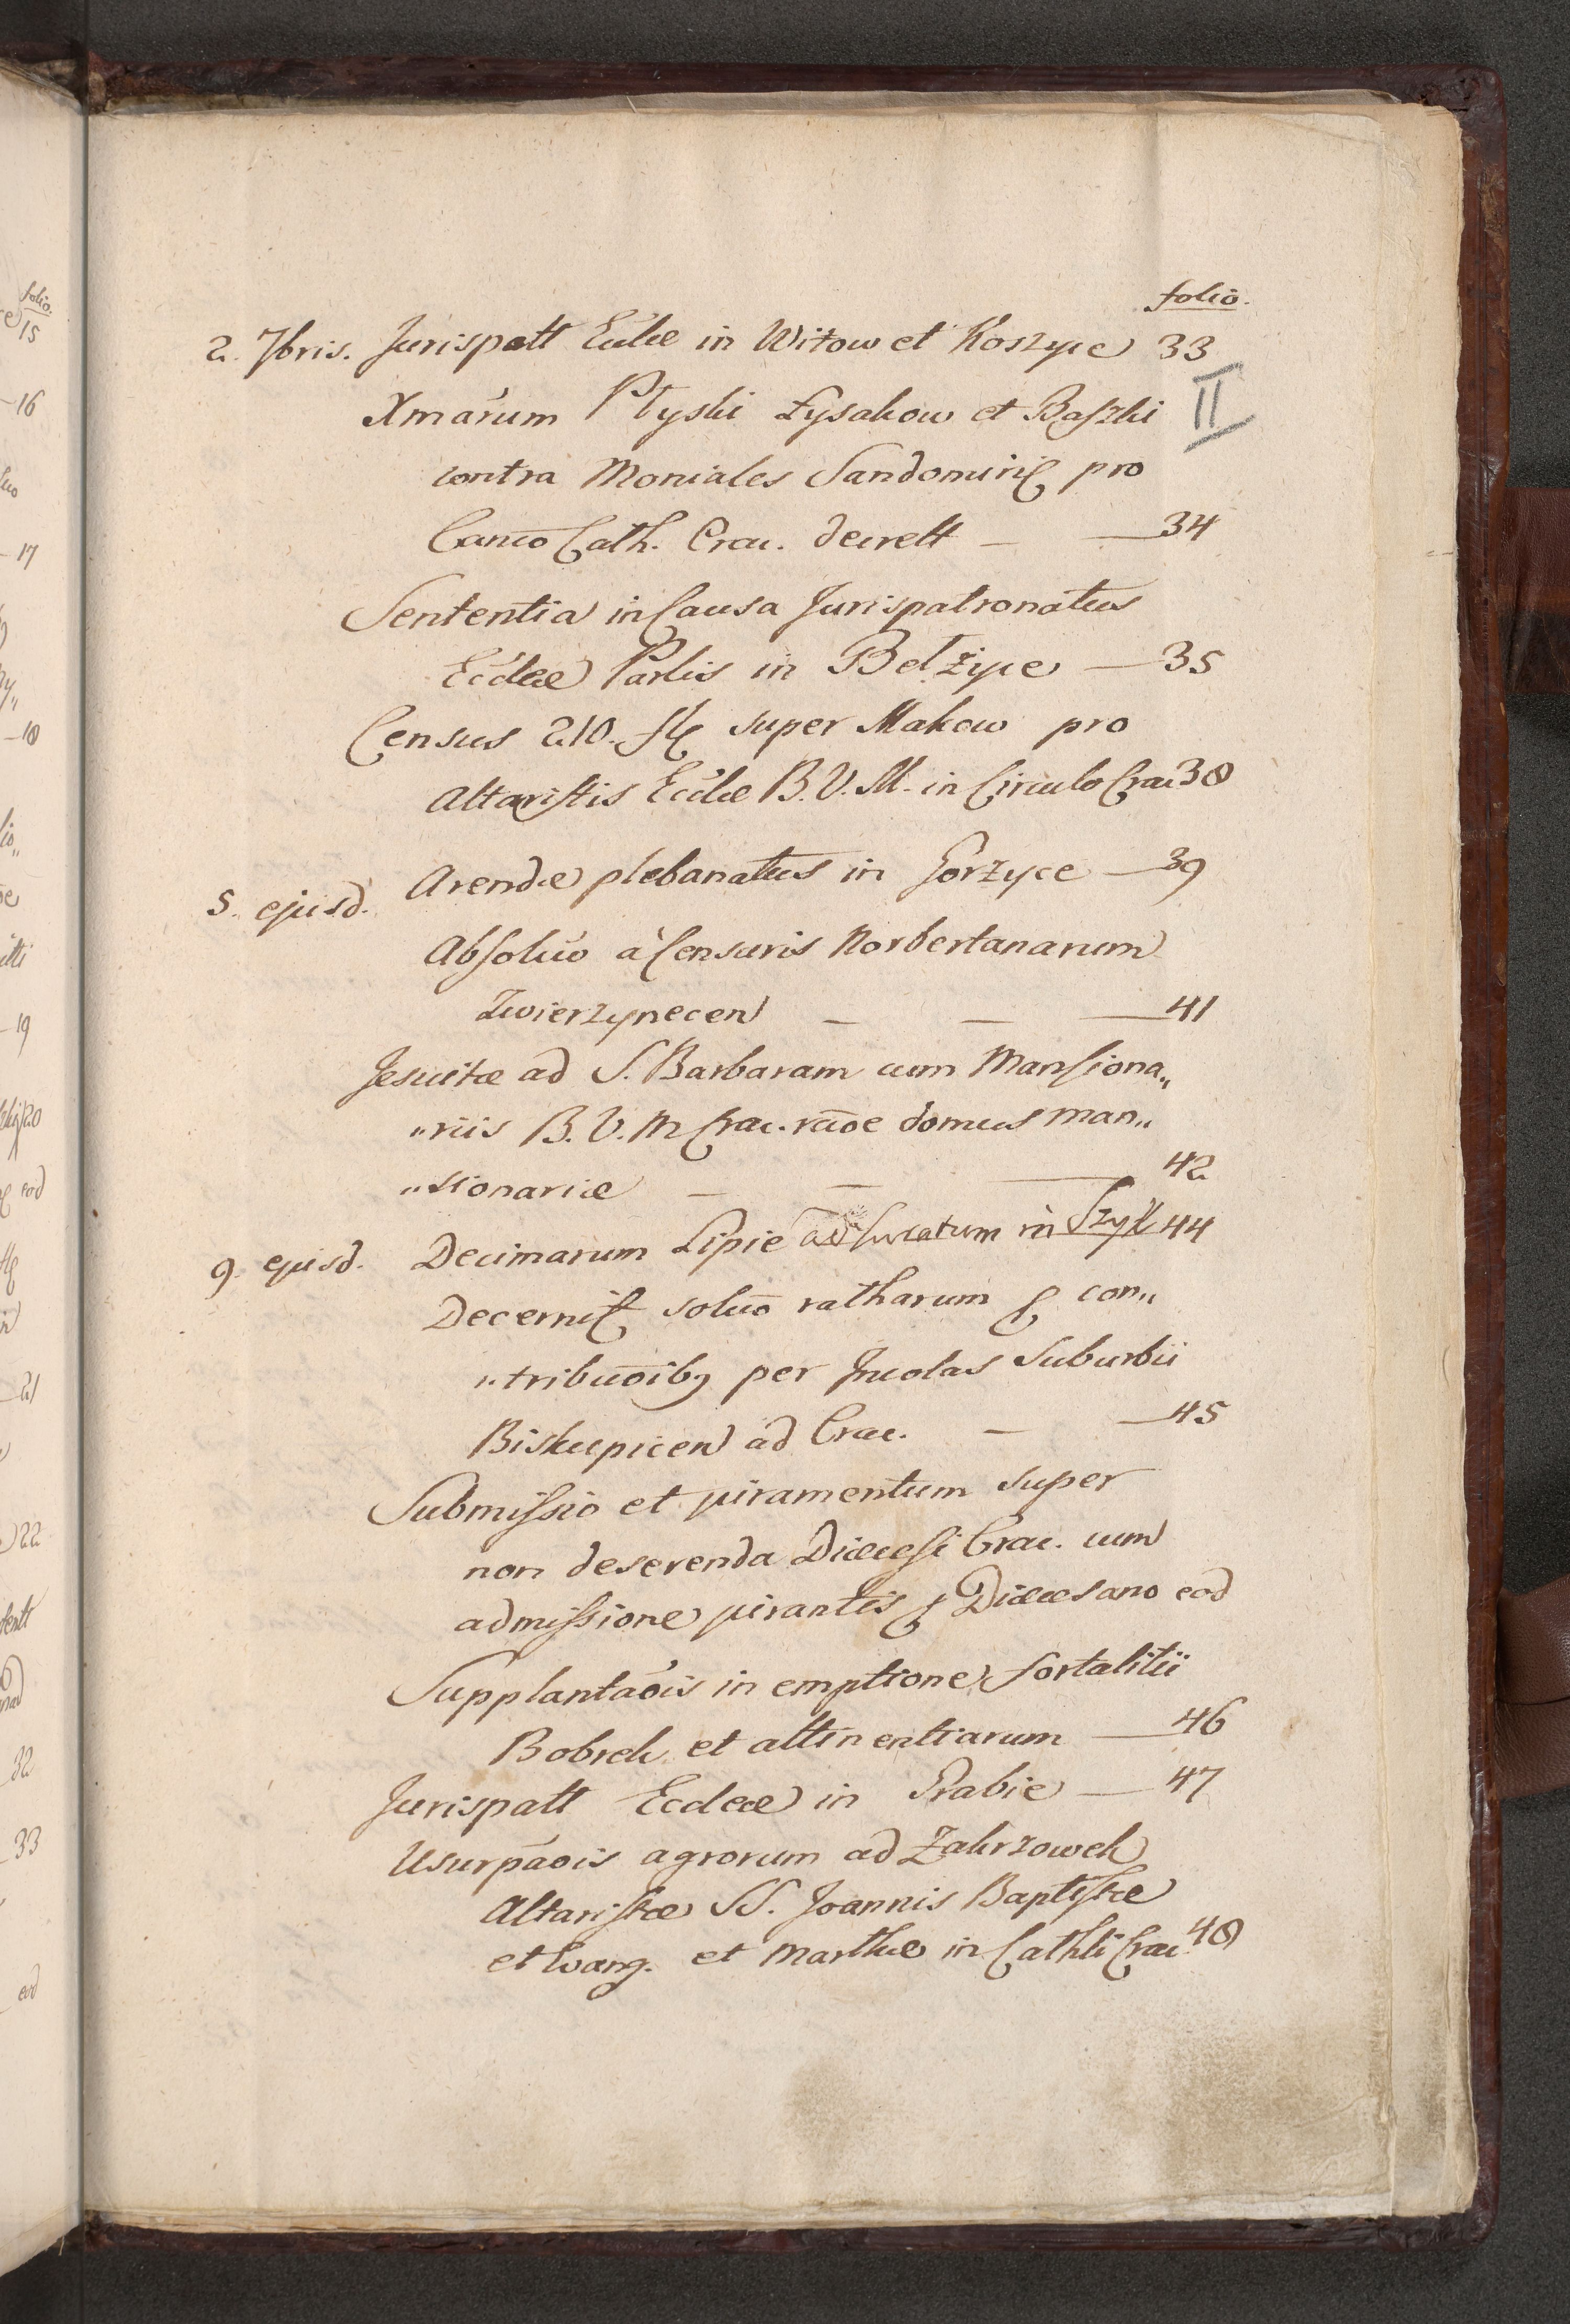 folio.
2. 7bris. Jurispatt Eccl̃æ in Witow et Koszyce 33
II
Xmarum Płyski Łysakow et Baszki
contra Moniales Sandomiriẽ pro
Canco Cath. Crac. decrett — — 34
Sententia in Causa Jurispatronatus
Ecclæ Parlis in Bełżyce — 35
Census 210. fl super Makow pro
Altaristis Ecclæ B.V.M. in Circulo Crac 38
5. ejusd. Arendæ plebanatus in Gorzyce — 39
Absoluo à Censuris Norbertanarum
Zwierzynecen — — — 41
Jesuitæ ad S. Barbaram cum Mansiona„
„riis B.V.M Crac. rãoe domus man„
„sionariæ — — — 42
9. ejusd. Decimarum Lipie ad Curatum in Szyk 44
Decernit soluõ ratharum ꝑ con„
„tribuõibꝫ per Incolas Suburbii
Biskupicen ad Crac. — — 45
Submissio et juramentum super
non deserenda Diæcesi Crac. cum
admissione jurantis ꝑ Diæcesano eod
Supplantãois in emptione fortalitii
Bobrek et attinentiarum — 46
Jurispatt Ecclæ in Grabie — 47
Usurpãois agrorum ad Zakrzowek
Altaristæ SS. Joannis Baptistæ
et Evang. et Marthæ in Cathli Crac 48
folio.
15
16
17
18
19
20
eod
21
22
32
33
eod